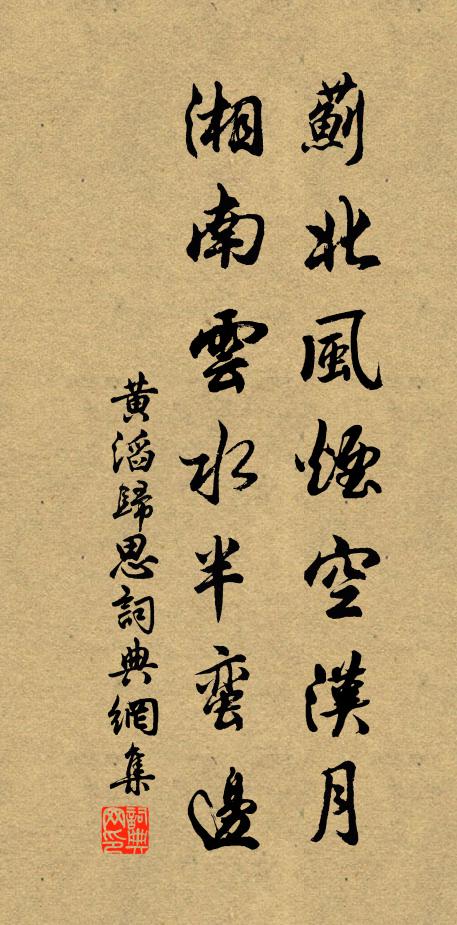 薊北風煙空漢月
湘南雲水半蛮邊
黄滔歸思詞典網集
詞典网印